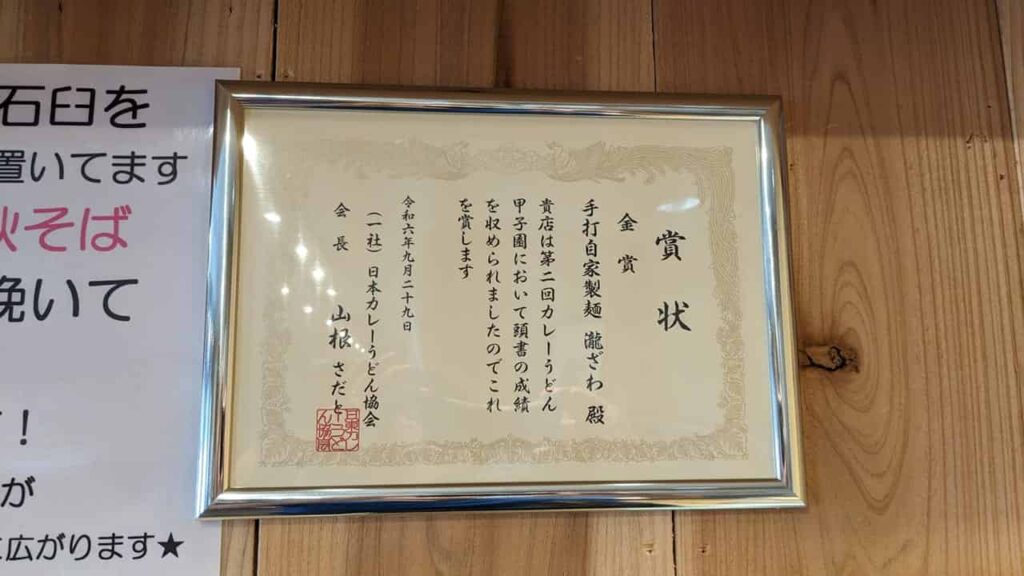 賞状
金賞
手打自家製麺 瀧ざわ 殿
貴店は第二回カレーうどん
甲子園において頭書の成績
を収められましたのでこれ
を賞します
令和六年九月二十九日
(一社)日本カレーうどん協会
会長 山根 さだと
石臼を
置いてます
秋そば
挽いて
!
が
に広がります★